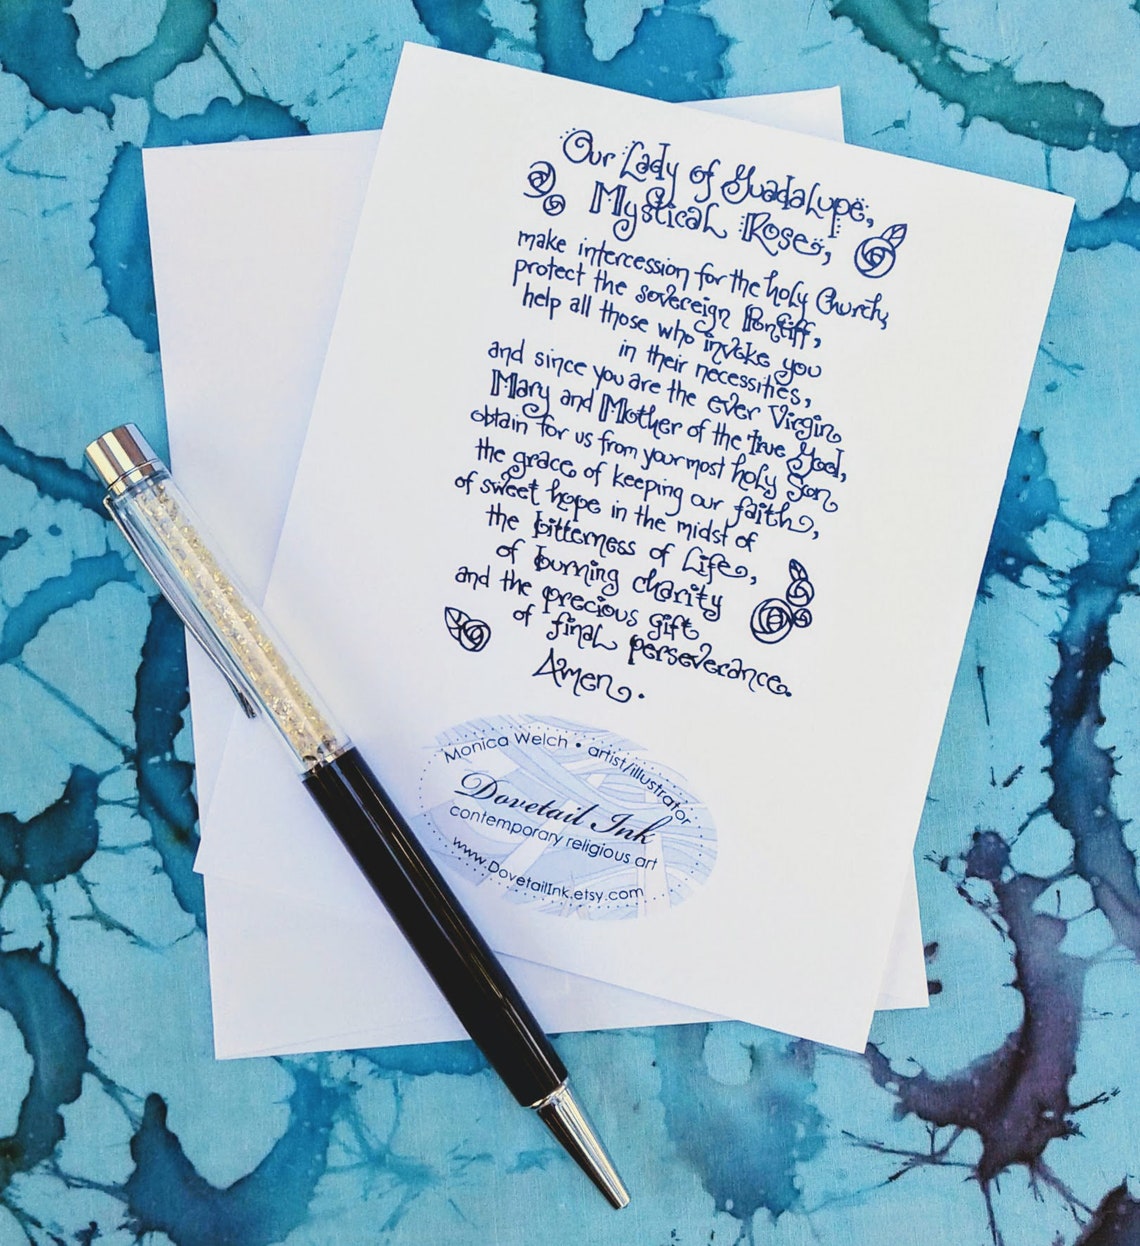 Our Lady of Guadalupe,
Mystical Rose,
make intercession for the holy Church,
protect the sovereign Pontiff,
help all those who invoke you
in their necessities,
and since you are the ever Virgin
Mary and Mother of the true God,
obtain for us from your most holy Son
the grace of keeping our faith,
of sweet hope in the midst of
the bitterness of life,
of burning charity
and the precious gift
of final perseverance.
Amen.
Monica Welch • artist/illustrator
Dovetail Ink
contemporary religious art
www.DovetailInk.etsy.com